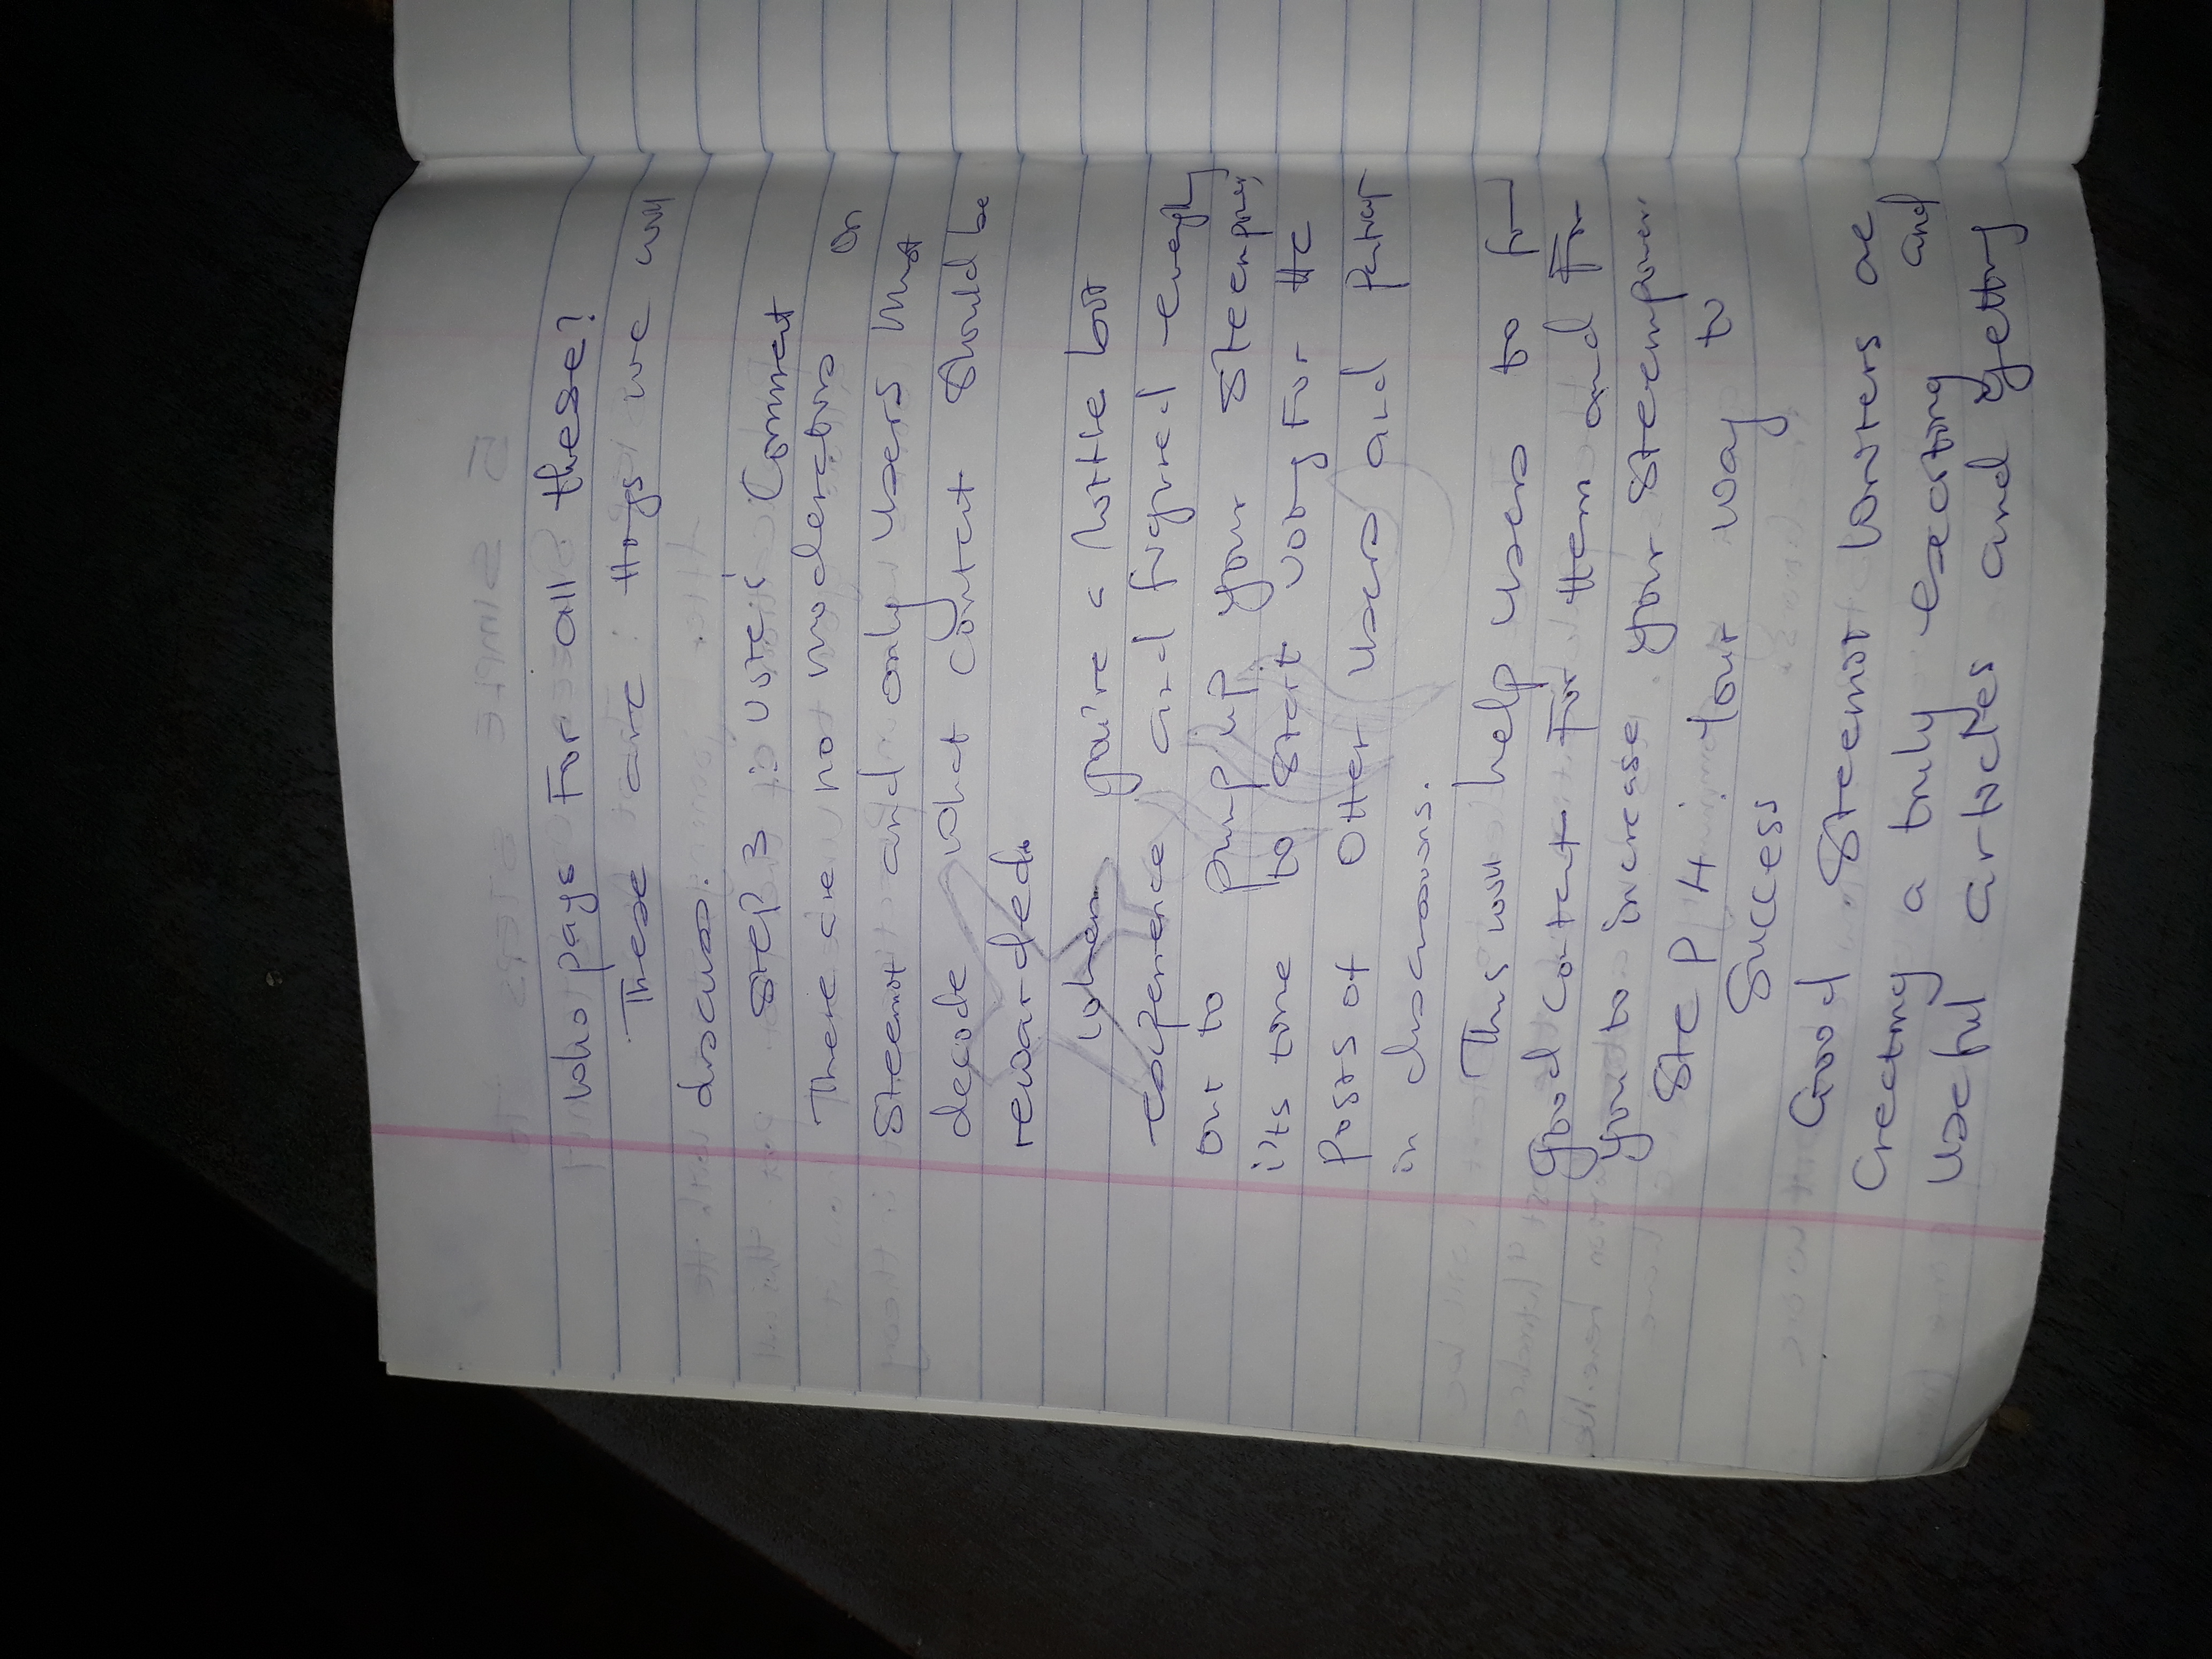 who pays For all these?
These are things we will
discuss.
STEP 3 : vote; Comment
There are no moderators on
Steemit and only users must
decide what content should be
rewarded.
When you're a little bit
experience and figured everything
out to pump up your Steempower,
its time to start voting For the
Posts of Other users and
in discussions.
This will help users to find
good content For them and For
you to increase your Steempower.
Step 4 : Your way to
Success
Good Steemit writers are
Creating a truly exciting and
useful articles and getting